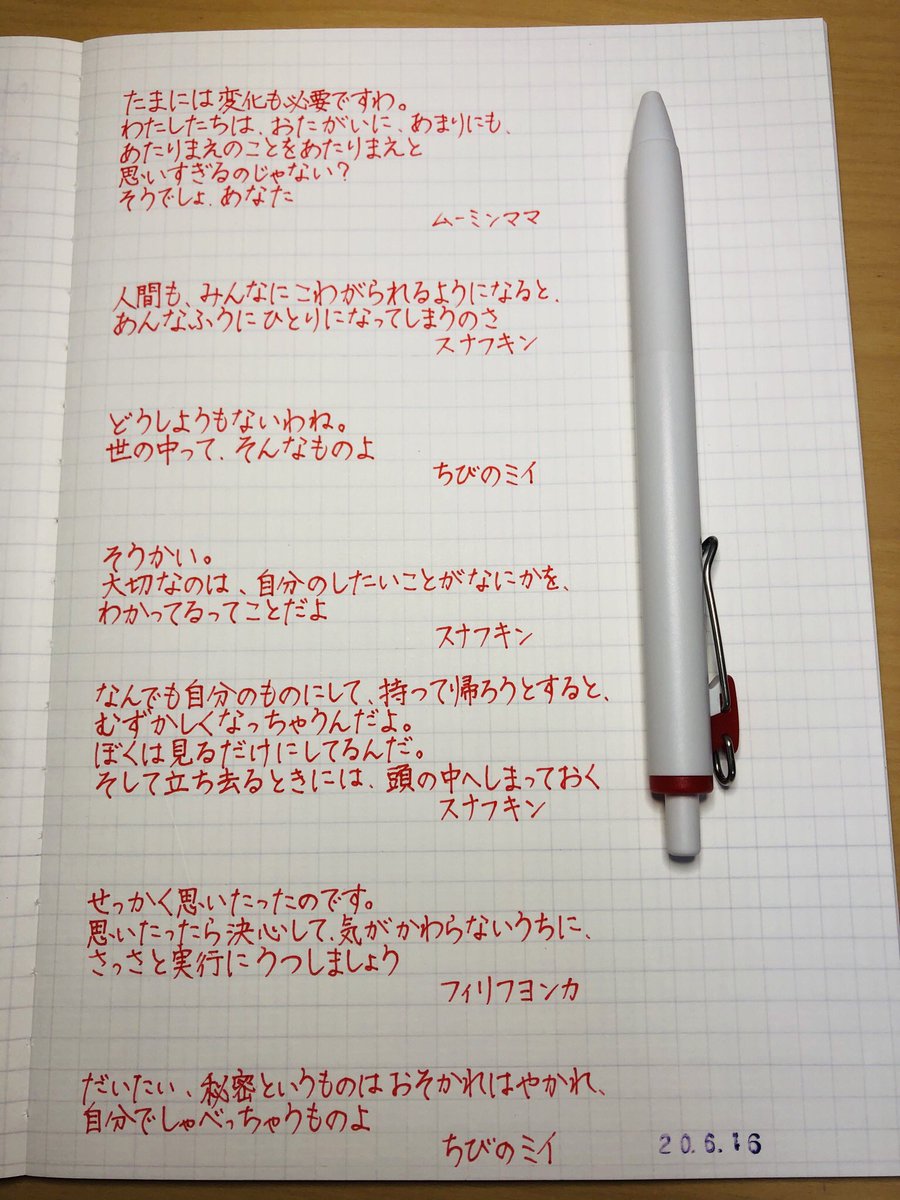 たまには変化も必要ですわ。
わたしたちは、おたがいに、あまりにも、
あたりまえのことをあたりまえと
思いすぎるのじゃない？
そうでしょ、あなた
ムーミンママ
人間も、みんなにこわがられるようになると、
あんなふうにひとりになってしまうのさ
スナフキン
どうしようもないわね。
世の中って、そんなものよ
ちびのミイ
そうかい。
大切なのは、自分のしたいことがなにかを、
わかってるってことだよ
スナフキン
なんでも自分のものにして、持って帰ろうとすると、
むずかしくなっちゃうんだよ。
ぼくは見るだけにしてるんだ。
そして立ち去るときには、頭の中へしまっておく
スナフキン
せっかく思いたったのです。
思いたったら決心して、気がかわらないうちに、
さっさと実行にうつしましょう
フィリフヨンカ
だいたい、秘密というものはおそかれはやかれ、
自分でしゃべっちゃうものよ
ちびのミイ
20.6.16